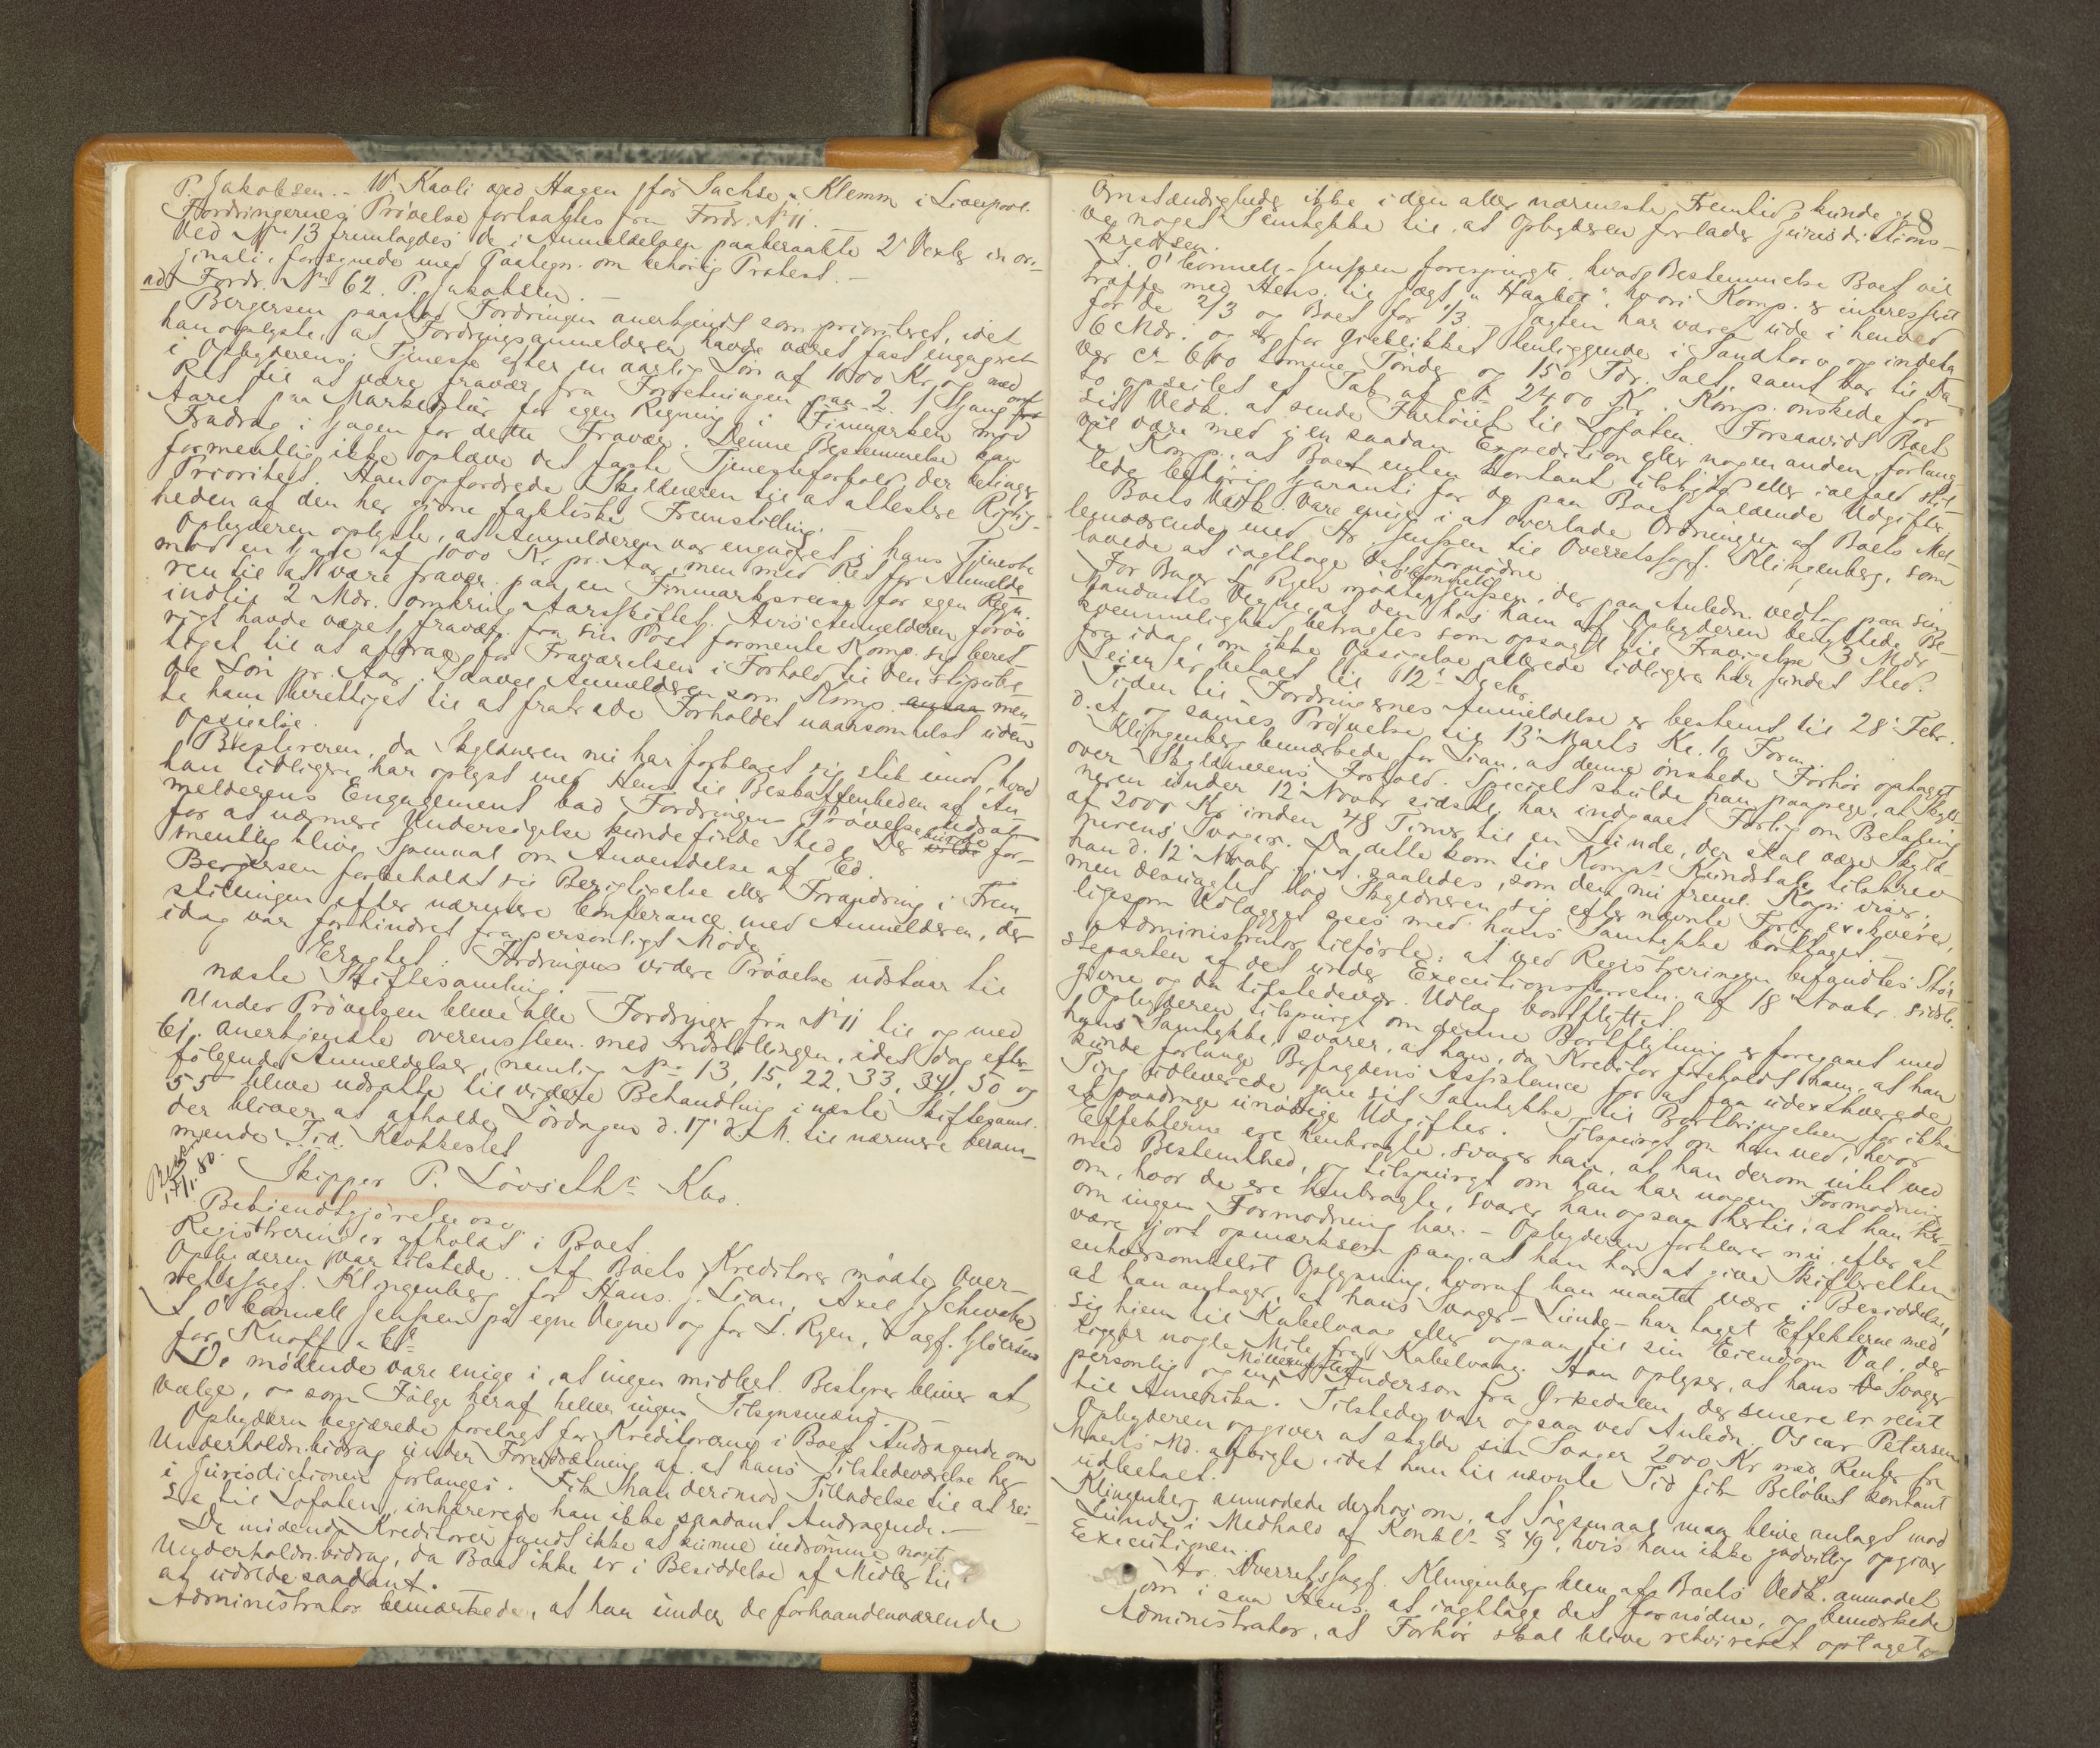 P. Jakobsen. - W. Kavli ved Hagen for Sachse & Klemm i Liverpool.
Fordringernes Prøvelse fortsattes fra Fordr. No 11.
Ved No 13 fremlagdes de i Anmeldelsen paaberaabte 2 Vexler in ori-
ginali, forsynede med Paategn. om behørig Protest. -
ad Fordr. No 62. P. Jakobsen. -
Bergersen paastod Fordringen anerkjendt som prioriteret, idet
han oplyste, at Fordringsanmelderen havde været fast engageret
i Opbyderens Tjeneste efter en aarlig Løn af 1000 Kr, og med
Ret til at være fravær. fra Forretningen paa 2 Gang om
Aaret paa Markedstur for egen Regning i Finmarken mod
Fradrag i Gagen for dette Fravær. Denne Bestemmelse kan
formentlig ikke ophæve det faste Tjenesteforhold, der betinger
Prioritet. Han opfordrede Skyldneren til at attestere Rigtig-
heden af den her givne faktiske Fremstilling. -
Opbyderen oplyste, at Anmelderen var engageret i hans Tjeneste
mod en Gage af 1000 Kr pr. Aar, men med Ret for Anmelde-
ren til at være fravær. paa en Finmarksreise for egen Regn.
indtil 2 Mdr. omkring Aarsskiftet. Hvis Anmelderen forøv-
rigt havde været fravær. fra sin Post formente Komp. sig beret-
tiget til at aftrage for Fraværelsen i Forhold til den stipule-
de Løn pr. Aar. Saavel Anmelderen som Komp. men-
te ham berettiget til at fratræde Forholdet naarsomhelst uden
Opsigelse.
Bestyreren, da Skyldneren nu har forklaret sig stik imod, hvad
han tidligere har oplyst med Hens. til Beskaffenheden af An-
melderens Engagement bad Fordringens Prøvelse udsat
for at nærmere Undersøgelse kunde finde Sted. Der burde for-
mentlig blive Spørsmaal om Anvendelse af Ed.
Bergersen forbeholdt sig Berigtigelse eller Forandring i Frem-
stillingen efter nærmere Conferance med Anmelderen, der
idag var forhindret fra personligt Møde.
Eragtet: Fordringens videre Prøvelse udstaar til
næste Skiftesamling. -
Under Prøvelsen bleve alle Fordringer fra No 11 til og med
61. anerkjendte overensstem. med Indstillingen, idet dog efter-
følgende Anmeldelser, nemlig No 13, 15, 22, 33, 34, 50 og
55 bleve udsatte til videre Behandling i næste Skiftesaml.
der bliver at afholde Lørdagen d. 17 d. M. til nærmere beram-
mende Tid. Klokkeslet
17/1. 80.
Skipper P. Løvseths Kbo.
Bekiendtgjørelse osv.
Registrering er afholdt i Boet.
Opbyderen var tilstede. Af Boets Kreditorer mødte Over-
retssagf. Klingenberg for Hans J. Lian, Axel J. Schwabe
L. O'Connell Jenssen på egne Vegne og for L. Ryen, Sagf. Gløersen
for Knoff & Co
De mødende vare enige i, at ingen midlert. Bestyrer bliver at
vælge, og som Følge heraf heller ingen Tilsynsmænd. -
Opbyderen begjærede forelagt for Kreditorerne i Boet Andragende om
Underholdn.bidrag under Forudsætning af at hans Tilstedeværelse her
i Jurisdictionen forlanges. Fik han derimod Tilladelse til at rei-
se til Lofoten, inhærerede han ikke saadant Andragende. -
De mødende Kreditorer fandt ikke at kunne indrømme noget
Underholdn.bidrag, da Boet ikke er i Besiddelse af Midler til
at udrede saadant.
Administrator bemærkede, at han under de forhaandenværende
8
Omstændigheder ikke i den aller nærmeste Fremtid kunde gi-
ve noget Samtykke til, at Opbyderen forlader Jurisdictions-
kredsen.
L. O'Connell-Jenssen forespurgte, hvad Bestemmelse Boet vil
træffe med Hens. til Jagt "Haabet", hvori Komp. er interesseret
for de 2/3 og Boet for 1/3. Jagten har været ude i henved
6 Mdr. og er for Øieblikket henliggende i Sandtorv og indeha-
ver ca 600 tomme Tønder og 150 Tdr. Salt, samt har til Da-
to opseilet et Tab af ca 2400 Kr. Komp. ønskede for
sit Vedk. at sende Fartøiet til Lofoten. Forsaavidt Boet
vil være med i en saadan Expedition eller nogen anden, forlang-
te Komp., at Boet enten kontant tilskjød eller ialfald stil-
lede behørig Garanti for de paa Boet faldende Udgifter.
Boets Vedk. vare enige i at overlade Ordningen af Boets Mel-
lemværende med Hr. Jenssen til Overretssagf. Klingenberg, som
lovede at iagttage det fornødne.
For Bager L. Ryen mødte O'Connell Jenssen, der paa Anledn. vedtog paa sin
Mandants Vegne, at den hos ham af Opbyderen benyttede Be-
kvemmelighed betragtes som opsagt til Fravigelse 3 Mdr
fra idag, om ikke Opsigelse allerede tidligere har fundet Sted.
Leien er betalt til 12 Decbr.
Tiden til Fordringernes Anmeldelse er bestemt til 28 Febr.
d. A. og sammes Prøvelse til 13 Marts Kl. 10 Form.
Klingenberg bemærkede for Lian, at denne ønskede Forhør optaget
over Skyldnerens Forhold. Specielt skulde han paapege, at Skyld-
neren under 12 Novbr sidstl. har indgaaet Forlig om Betaling
af 2000 Kr. inden 48 Timer til en Lunde, der skal være Skyld-
nerens Svoger. Da dette kom til Komps Kundskab tilskrev
han d. 12 Novbr f. A. saaledes, som den nu freml. Kopi viser,
men desuagtet lod Skyldneren sig efter nævnte Forlig exekvere,
ligesom Udlægget sees med hans Samtykke borttaget. -
Administrator tilførte: at ved Registreringen befandtes Stør-
steparten af det under Executionsforretn. af 18 Novbr. sidstl.
givne og da tilstedevær. Udlæg bortflyttet.
Opbyderen tilspurgt om denne Bortflytning er foregaaet med
hans Samtykke, svarer, at han, da Kreditor foreholdt ham, at han
kunde forlange Byfogdens Assistance for at faa de exekverede
Ting udleverede, gav sit Samtykke til Bortbringelsen for ikke
at paadrage unødige Udgifter. Tilspurgt om han ved, hvor
Effekterne ere henbragte, svarer han, at han derom intet ved
med Bestemthed, og tilspurgt om han har nogen Formodning
om, hvor de ere henbragte, svarer han ogsaa hertil, at han her-
om ingen Formodning har. - Opbyderen forklarer nu, efter at
være gjort opmærksom paa, at han har at give Skifteretten
enhversomhelst Oplysning, hvoraf han maatte være i Besiddelse,
at han antager, at hans Svoger - Lunde - har taget Effekterne med
sig hjem til Kabelvaag eller ogsaa til sin Eiendom Val, der
ligger nogle Mile fra Kabelvaag. Han oplyser, at hans Svoger
personlig og en Anderson fra Ørkedalen, der senere er reist
til Amerika. Tilstede var ogsaa ved Anledn. Oscar Petersen
Opbyderen opgiver at skylde sin Svoger 2000 Kr med Renter fra
Marts Md. afvigte, idet han til nævnte Tid fik Beløbet kontant
udbetalt.
Klingenberg anmodede derhos om, at Søgsmaal maa blive anlagt mod
Lunde i Medhold af Konkl § 49, hvis han ikke godvillig opgiver
Executionen.
Hr. Overretssagf. Klingenberg blev af Boets Vedk. anmodet
om i saa Hens. at iagttage det fornødne, og bemærkede
Administrator, at Forhør skal blive rekvireret optaget